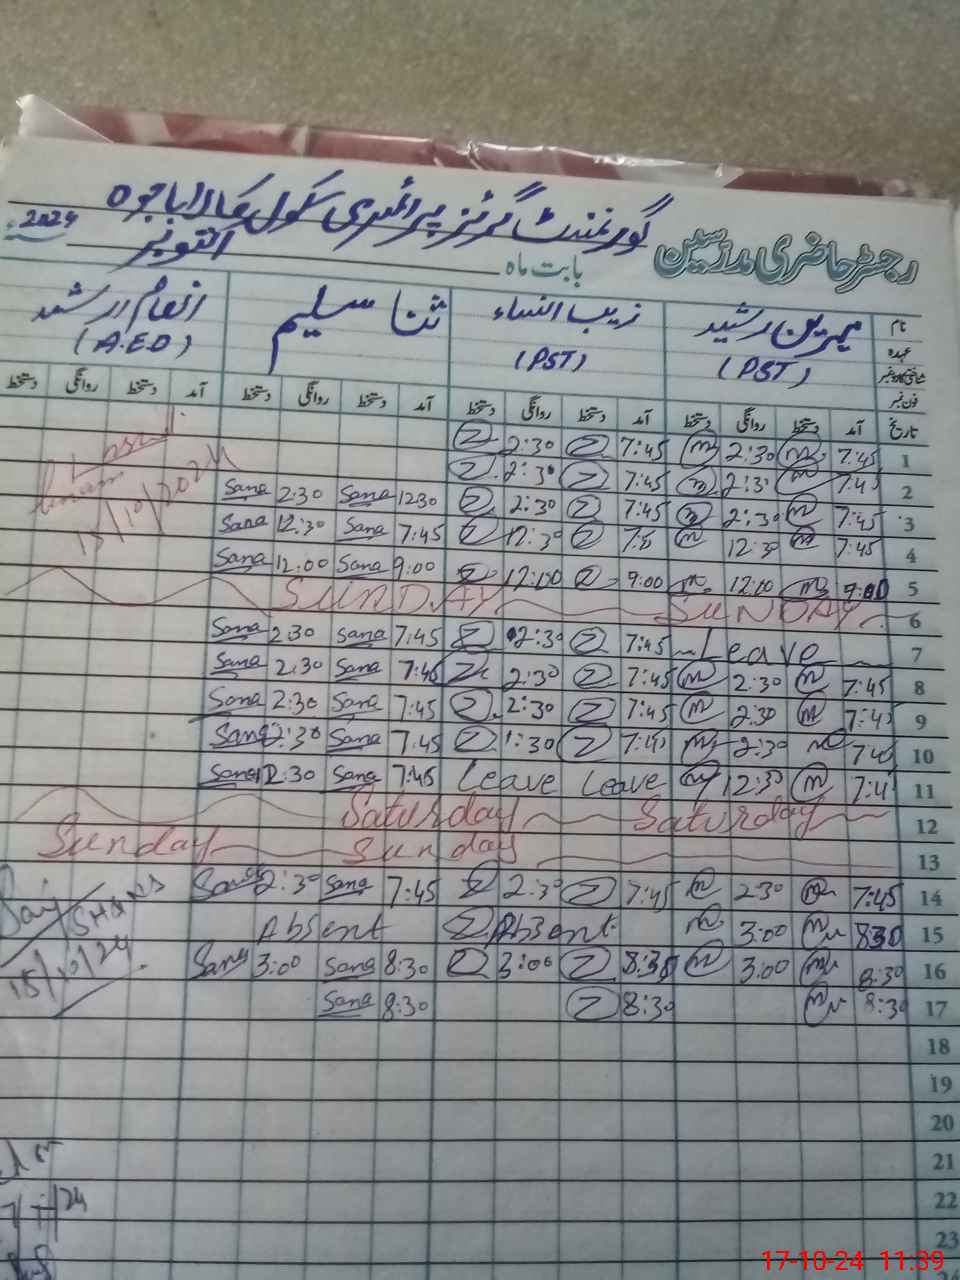 گورنمنٹ گرلز پرائمری سکول
رجسٹر حاضری مدرسین
بابت ماہ اکتوبر 2024
نام مہرین رشید زیب النساء ثنا سلیم انعام ارشد
عہدہ (PST) (PST) (A.E.O)
شناختی کارڈ نمبر
فون نمبر
تاریخ آمد دستخط روانگی دستخط آمد دستخط روانگی دستخط آمد دستخط روانگی دستخط آمد دستخط روانگی دستخط
1 7:45 m 2:30 m 7:45 Z 2:30 Z
2 7:45 m 2:30 m 7:45 Z 2:30 Z
3 7:45 m 2:30 m 7:45 Z 2:30 Z 1230 Sana 2:30 Sana
4 7:45 m 12:30 m Z 12:30 Z 7:45 Sana 12:30 Sana
5 9:00 m 12:00 m 9:00 Z 12:00 Z 9:00 Sana 12:00 Sana
15/10/2024
6 SUNDAY SUNDAY
7 Leave 7:45 Z 2:30 Z 7:45 Sana 2:30 Sana
8 7:45 m 2:30 m 7:45 Z 2:30 Z 7:45 Sana 2:30 Sana
9 m 2:30 m 7:45 Z 2:30 Z 7:45 Sana 2:30 Sana
10 m 2:30 m Z 1:30 Z 7:45 Sana 2:30 Sana
11 m 12:30 m Leave Leave 7:45 Sana 12:30 Sana
12 Saturday Saturday
13 Sunday Sunday
14 7:45 m 2:30 m 7:45 Z 2:30 Z 7:45 Sana 2:30 Sana
15 830 m 3:00 m Absent Z Absent
16 8:30 m 3:00 m 8:30 Z 3:00 Z 8:30 Sana 3:00 Sana
15/10/24
17 8:30 m 8:30 Z 8:30 Sana
18
19
20
21
22
23
17-10-24 11:39